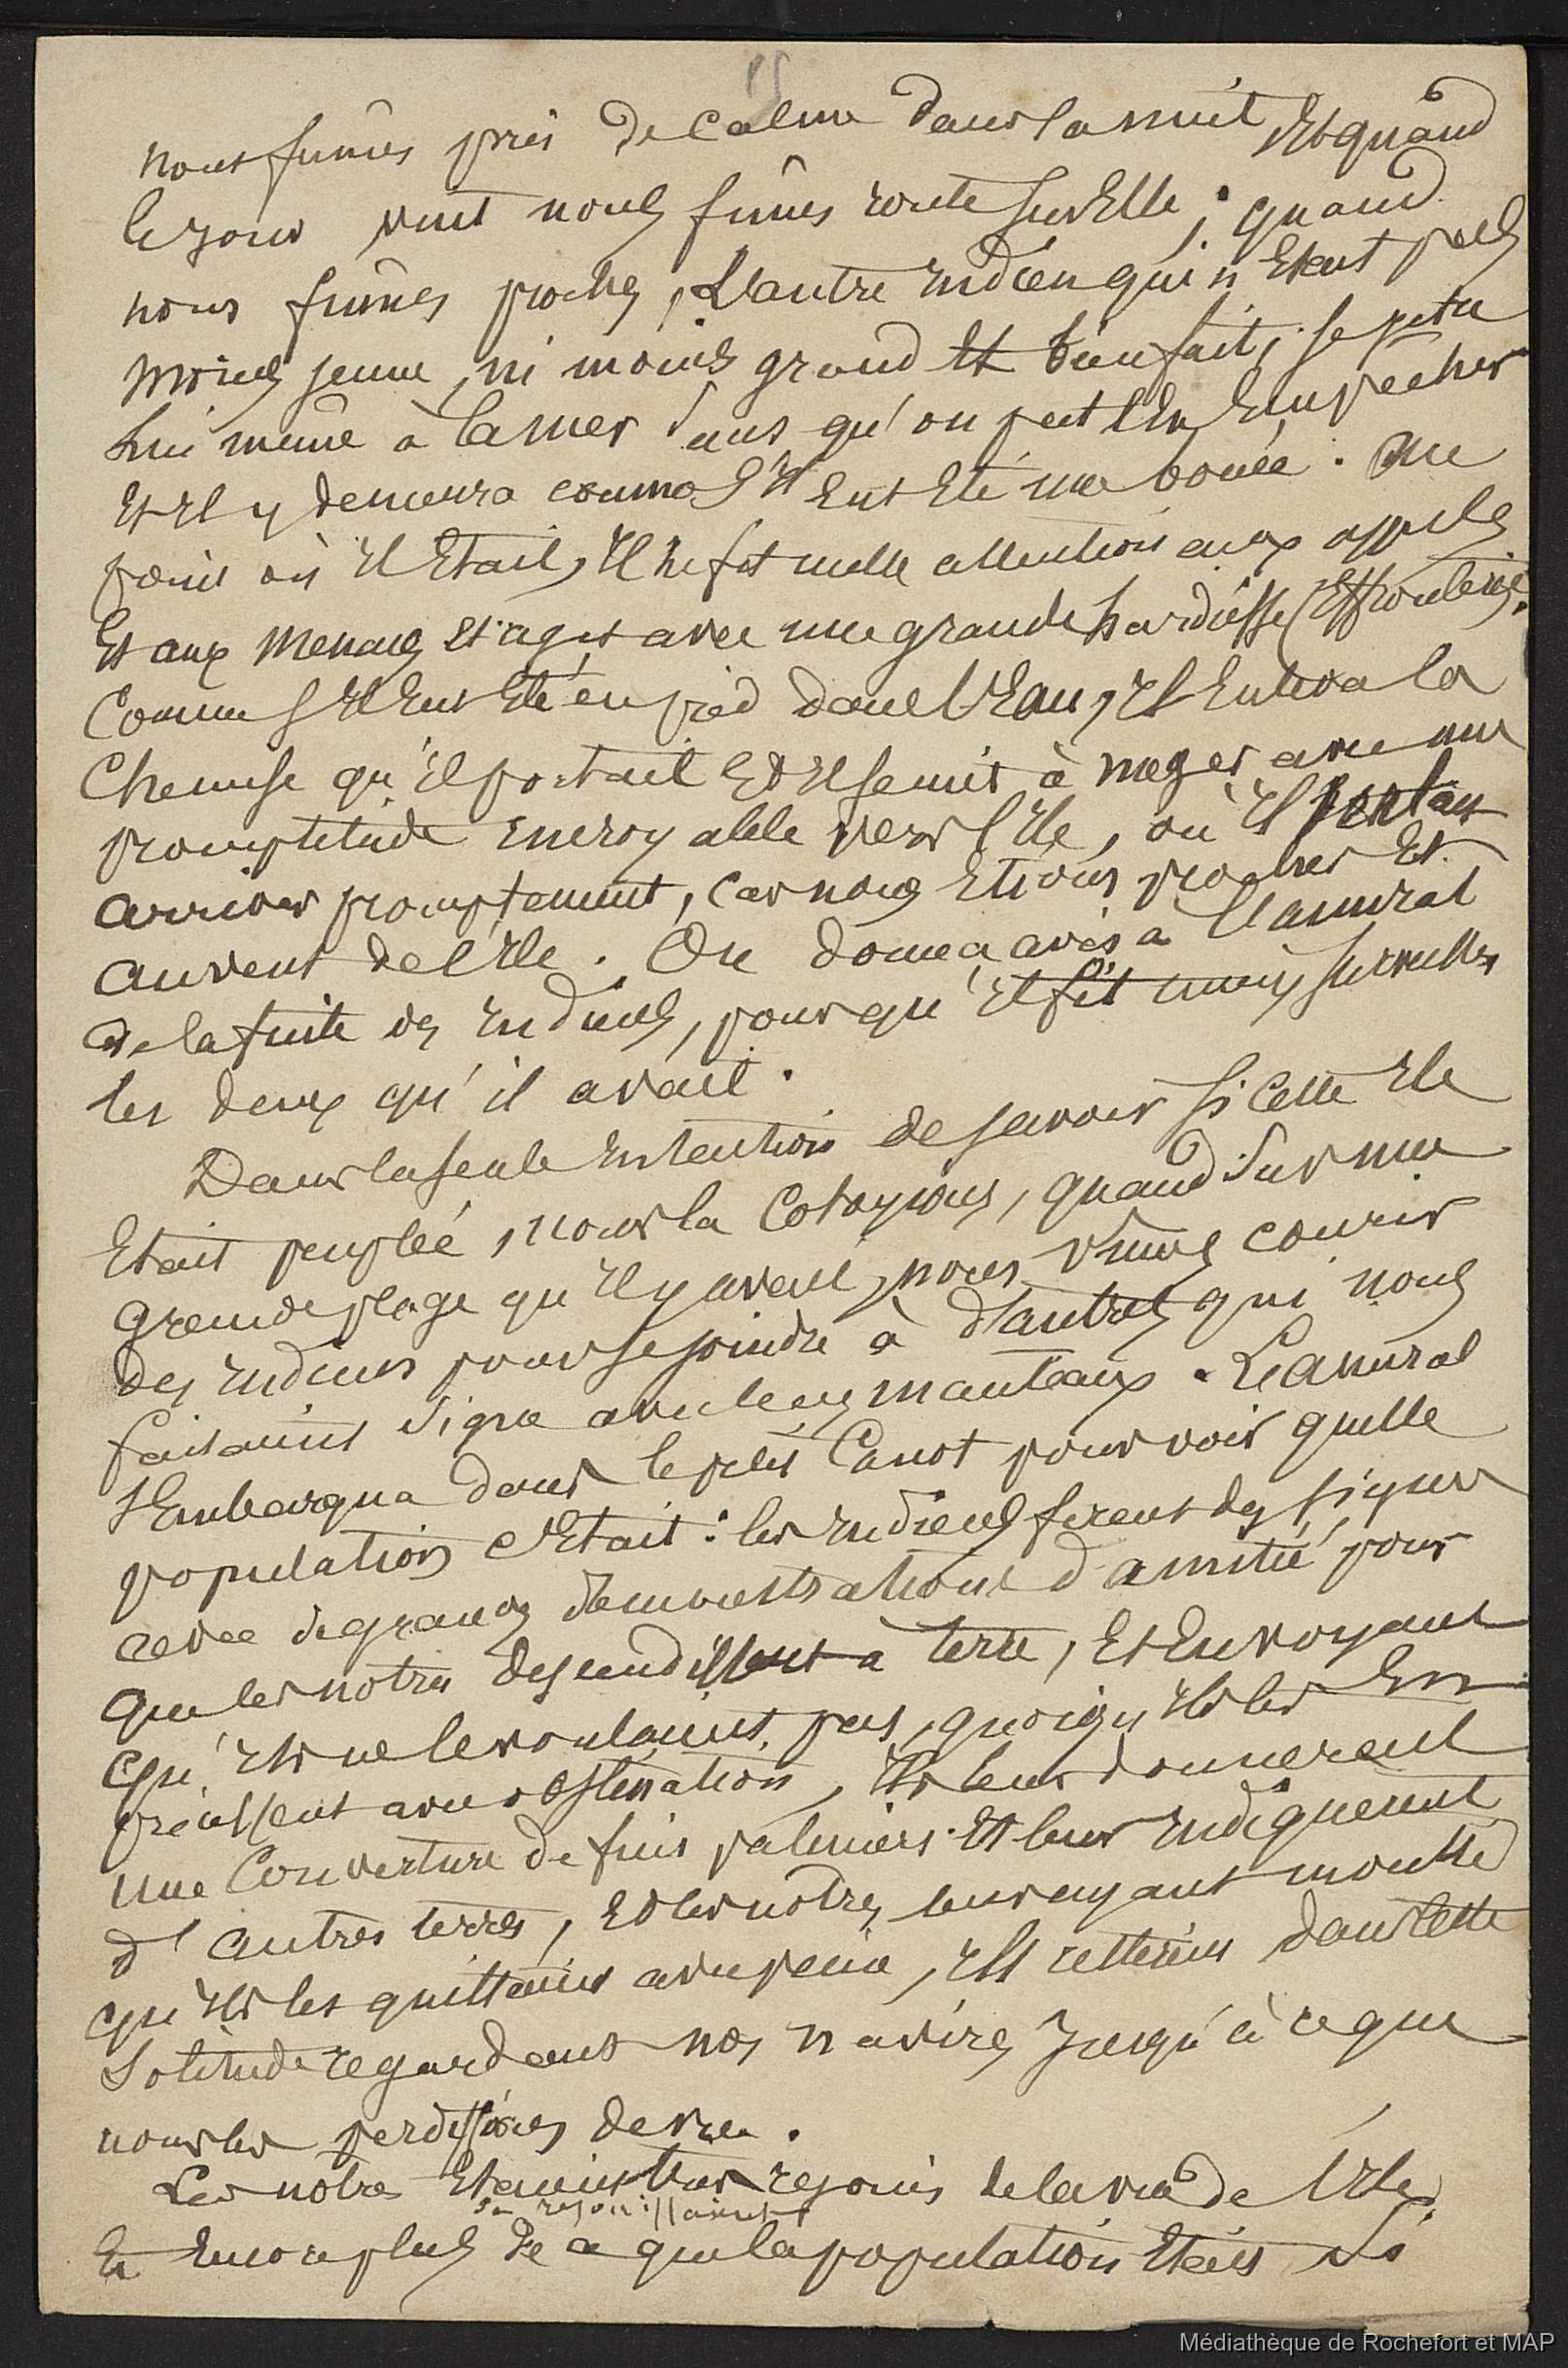 15
nous fumes pris de calme dans la nuit, Et quand
le jour vint nous fimes route sur Elle ; quand
nous fumes proches, L'autre Indien qui n'Etait pas
moins jeune, ni moins grand et bien fait, se jeta
Lui même à la mer sans qu'on put l'En Empecher
Et Il y demeura comme s'Il Eut Eté une bouée. Du
point où Il Etait, Il ne fit nulle attention aux appels
Et aux menaces Et agit avec une grande hardiesse (Effronterie).
Comme s'Il Eut Eté en pied dans l'Eau, Il Enleva la
Chemise qu'il portait Et Il se mit à nager avec une
promptitude Incroyable vers l'Ile, où Il
arriver promptement, car nous Etions proches Et
au vent de l'Ile. On donna avis à l'amiral
de la fuite des Indiens, pour qu'Il fit mieux surveiller
les deux qu'il avait.
Dans la seule Intention de savoir si cette Ile
Etait peuplée, nous la cotoyions, quand sur une
grande plage qu'Il y avait, nous vimes courir
des Indiens pour se joindre à d'autres qui nous
faisaient signe avec leurs manteaux. L'amiral
s'Embarqua dans le petit Canot pour voir quelle
population c'Etait : les Indiens firent des signes
avec de grandes demonstrations d'amitié pour
que les notres descendissent à terre, Et En voyant
qu'Ils ne le voulaient pas, quoiqu'Ils les En
priassent avec obstination, Ils leur donnerent
une Couverture de fins palmiers Et leur Indiquerent
d'autres terres, Et les notres leur ayant montré
qu'Ils les quittaient avec peine, Ils resterent dans cette
solitude regardant nos navires Jusqu'à ce que
nous les perdissions de vue.
Les notres Etaient tres rejouis de la vue de l'Ile,
se rejouissaient
Et Encore plus de ce que la population Etait si
Médiathèque de Rochefort et MAP